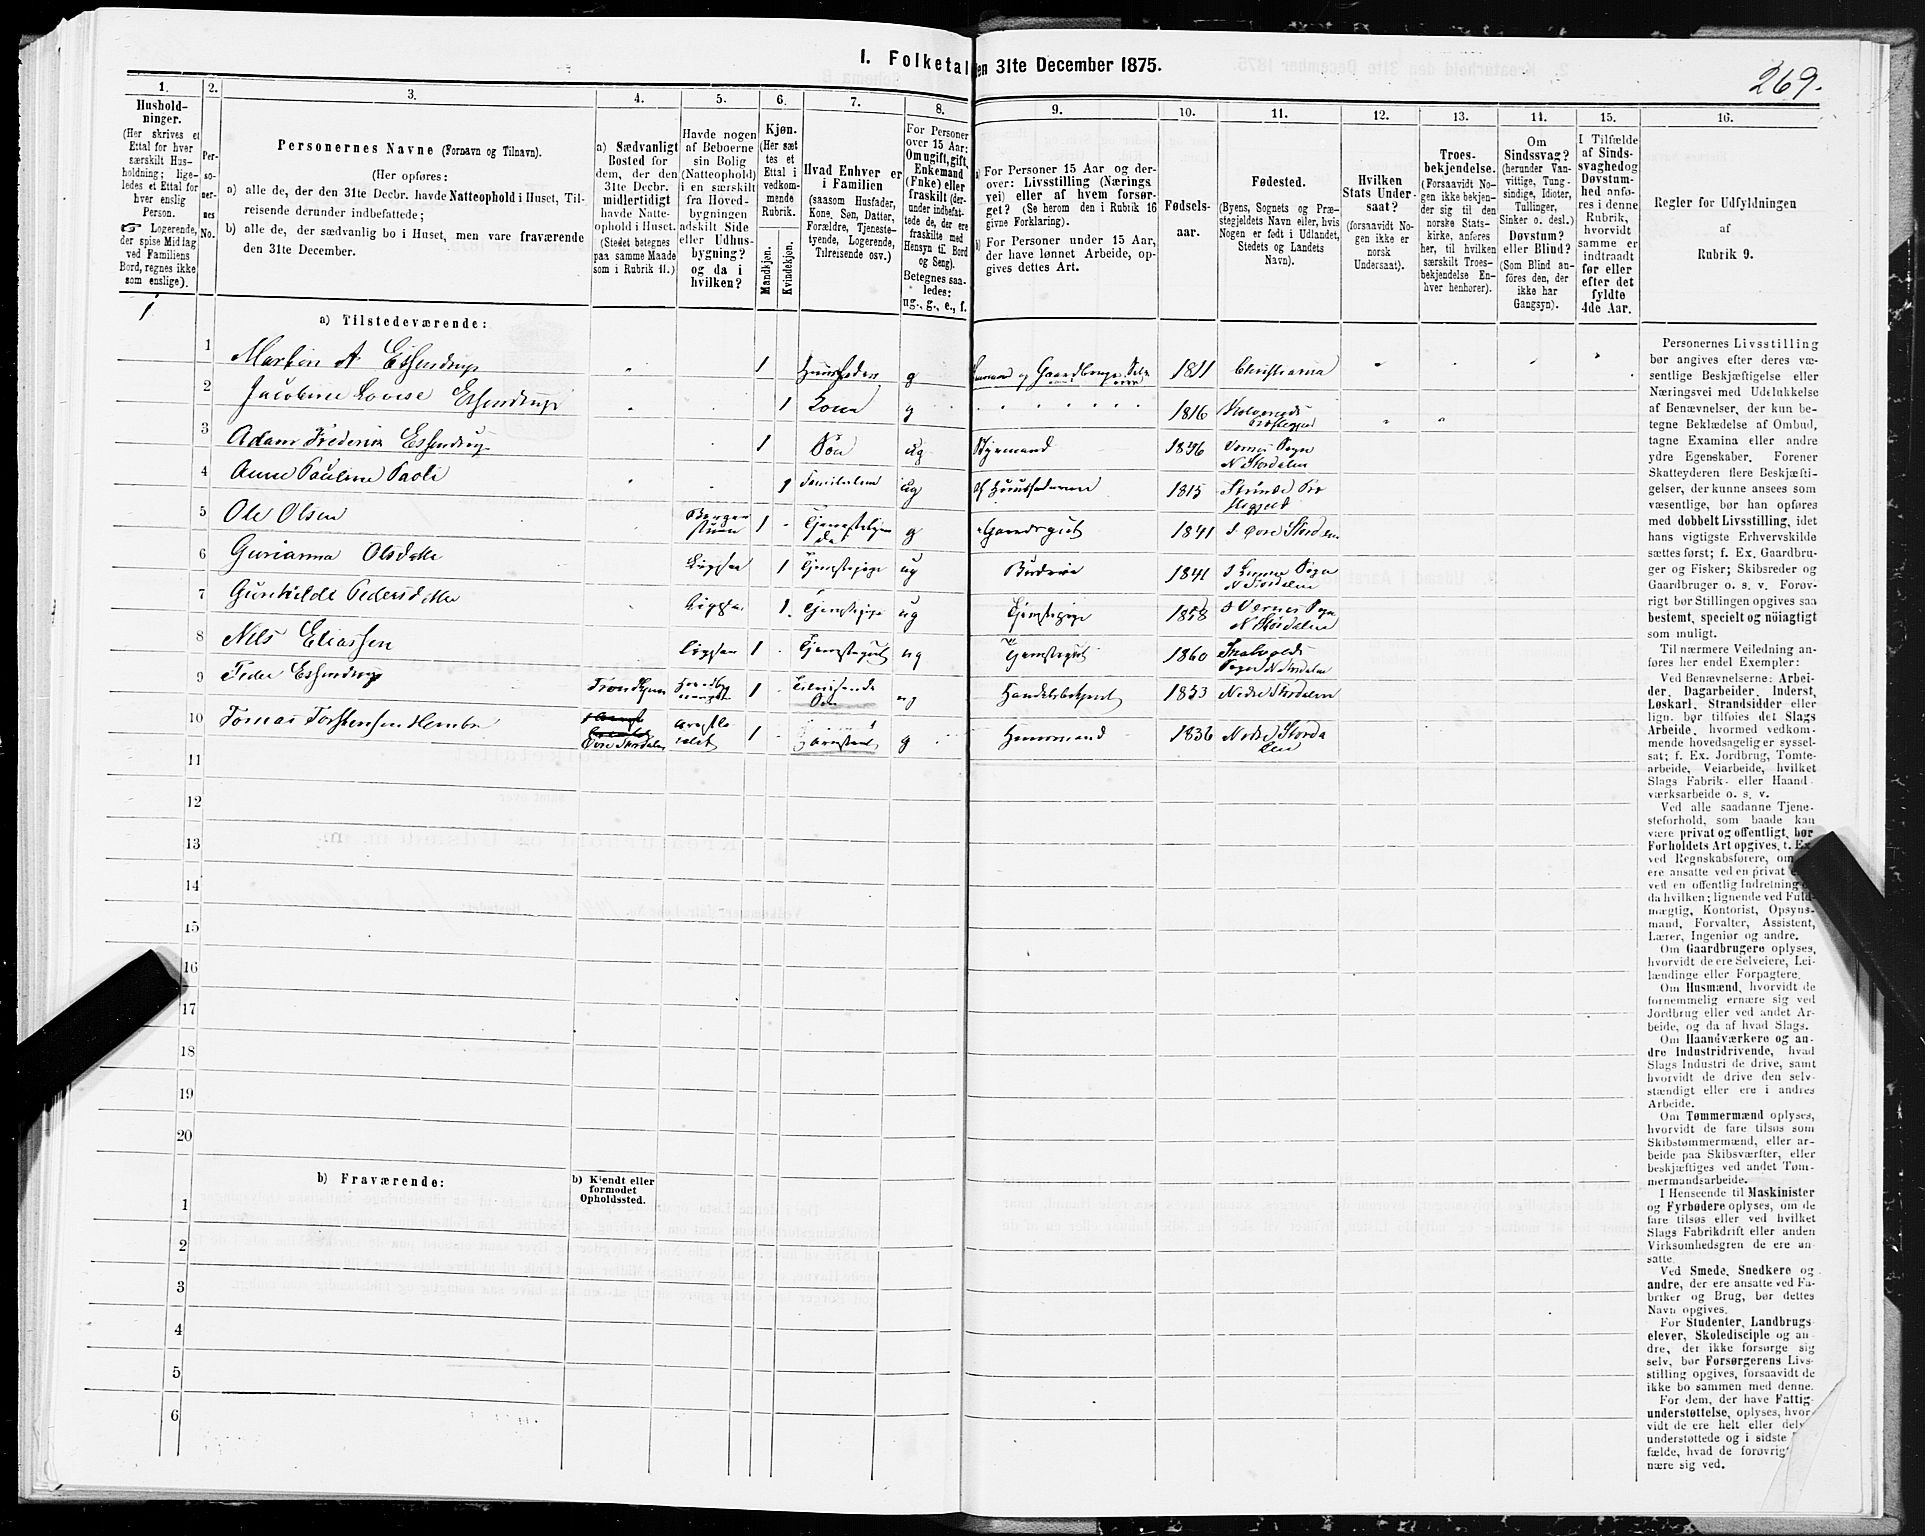 I. Folketal den 31te December 1875.
269.
1.
Hushold-
ninger.
(Her skrives et
Ettal for hver
særskilt Hus-
holdning; lige-
ledes et Ettal for
hver enslig
Person.
☞ Logerende,
der spise Middag
ved Familiens
Bord, regnes ikke
som enslige).
2.
Per-
so-
ner-
nes
No.
3.
Personernes Navne (Fornavn og Tilnavn).
(Her opføres:
a) alle de, der den 31te Decbr. havde Natteophold i Huset, Til-
reisende derunder indbefattede;
b) alle de, der sædvanlig bo i Huset, men vare fraværende
den 31te December.
4.
a) Sædvanligt
Bosted for
dem, der den
31te Decbr.
midlertidigt
havde Natte-
ophold i Huset.
(Stedet betegnes
paa samme Maade
som i Rubrik 11.)
5.
Havde nogen
af Beboerne
sin Bolig
(Natteophold)
i en særskilt
fra Hoved-
bygningen
adskilt Side
eller Udhus-
bygning?
og da i
hvilken?
6.
Kjøn.
(Her sæt
tes et
Ettal i
vedkom-
mende
Rubrik.
Mandkjøn.
Kvindekjøn.
7.
Hvad Enhver er
i Familien
(saasom Husfader,
Kone, Søn, Datter,
Forældre, Tjeneste-
tyende, Logerende,
Tilreisende osv.)
8.
For Personer
over 15 Aar:
Om ugift, gift,
Enkemand
(Enke) eller
fraskilt (der-
under indbefat-
tede de, der ere
fraskilte med
Hensyn til Bord
og Seng).
Betegnes saa-
ledes:
ug., g., e., f.
9.
a) For Personer 15 Aar og der-
over: Livsstilling (Nærings
vei) eller af hvem forsør-
get? (Se herom den i Rubrik 16
givne Forklaring).
b) For Personer under 15 Aar,
der have lønnet Arbeide, op-
gives dettes Art.
10.
Fødsels-
aar.
11.
Fødested.
(Byens, Sognets og Præ-
stegjeldets Navn eller, hvis
Nogen er født i Udlandet,
Stedets og Landets
Navn).
12.
Hvilken
Stats Under-
saat?
(forsaavidt No-
gen ikke er
norsk
Undersaat).
13.
Troes-
bekjendelse.
(Forsaavidt No-
gen ikke bekjen-
der sig til den
norske Stats-
kirke, anføres
her, til hvilken
særskilt Troes-
bekjendelse En-
hver henhører).
14.
Om
Sindssvag?
(herunder Van-
vittige, Tung-
sindige, Idioter,
Tullinger,
Sinker o. desl.)
Døvstum?
eller Blind?
(Som Blind an-
føres den, der
ikke har
Gangsyn).
15.
I Tilfælde
af Sinds-
svaghed og
Døvstum-
hed anfø-
res i denne
Rubrik,
hvorvidt
samme er
indtraadt
før eller
efter det
fyldte
4de Aar.
16.
Regler for Udfyldningen
af
Rubrik 9.
1
a) Tilstedeværende:
1 Martin A Essendrop 1 Huusfader g 1811 Christiania
2 Jacobine Lovise Essendrop 1 Kone g 1816
3 Adam Frederik Essendrop 1 Søn ug Styrmand 1846 Værnes Sogn
N Stordalen
4 Anne Pauline Paoli 1 ug af Huusfaderen 1815
5 Ole Olsen Borger
stuen 1 g Gaardsgut 1841 Øvre Stordalen
6 Gurianna Olsdatter Ligesaa 1 Tjenestepige ug Budeie 1841
N Stordalen
7 Gunhilde Pedersdatter Ligesaa 1 Tjenestepige ug Tjenestepige 1858 Værnes Sogn
N Stordalen
8 Nils Eliassen Ligesaa 1 Tjenestegut ug Tjenestegut 1860
Sogn N Stordalen
9 Peder Essendrop Trondhjem 1 Tilreisende
Søn ug 1853 Nedre Stordalen
10 Tomas Torstensen Hembre
Øvre Stordalen 1 Arrestant g Huusmand 1836 Nedre Storda
len
11
12
13
14
15
16
17
18
19
20
b) Fraværende:
b) Kjendt eller
formodet
Opholdssted.
1
2
3
4
5
6
Personernes Livsstilling
bør angives efter deres væ-
sentlige Beskjæftigelse eller
Næringsvei med Udelukkelse
af Benævnelser, der kun be-
tegne Beklædelse af Ombud,
tagne Examina eller andre
ydre Egenskaber. Forener
Skatteyderen flere Beskjæfti-
gelser, der kunne ansees som
væsentlige, bør han opføres
med dobbelt Livsstilling, idet
hans vigtigste Erhvervskilde
sættes først; f. Ex. Gaardbru-
ger og Fisker; Skibsreder og
Gaardbruger o. s. v. Forøv-
rigt bør Stillingen opgives saa
bestemt, specielt og nöiagtigt
som muligt.
Til nærmere Veiledning an-
føres her endel Exempler:
Ved Benævnelserne: Arbei-
der, Dagarbeider, Inderst,
Løskarl, Strandsidder eller
lign. bør tilføies det Slags
Arbeide, hvormed vedkom-
mende hovedsagelig er syssel-
sat; f. Ex. Jordbrug, Tomte-
arbeide, Veiarbeide, hvilket
Slags Fabrik- eller Haand-
værksarbeide o. s. v.
Ved alle saadanne Tjene-
steforhold, som baade kan
være privat og offentligt, bør
Forholdets Art opgives, t. Ex.
ved Regnskabsførere, om
ere ansatte ved en privat
ved en offentlig Indretning
da hvilken; lignende ved Fuld-
mægtig, Kontorist, Opsyns-
mand, Forvalter, Assistent,
Lærer, Ingeniør og andre.
Om Gaardbrugere oplyses,
hvorvidt de ere Selveiere, Lei-
lændinge eller Forpagtere.
Om Husmænd, hvorvidt de
fornemmelig ernære sig ved
Jordbrug eller ved andet Ar-
beide, og da af hvad Slags.
Om Haandværkere og an-
dre Industridrivende, hvad
Slags Industri de drive, samt
hvorvidt de drive den selv-
stændigt eller ere i andres
Arbeide.
Om Tømmermænd oplyses,
hvorvidt de fare tilsøs som
Skibstømmermænd, eller ar-
beide paa Skibsværfter, eller
beskjæftiges ved andet Tøm-
mermandsarbeide.
I Henseende til Maskinister
og Fyrbødere oplyses, om de
fare tilsøs eller ved hvilket
Slags Fabrikdrift eller anden
Virksomhedsgren de ere an-
satte.
Ved Smede, Snedkere og
andre, der ere ansatte ved Fa-
briker og Brug, bør dettes
Navn opgives.
For Studenter, Landbrugs-
elever, Skoledisciple og an-
dre, der ikke forsørge sig
selv, bør Forsørgerens Livs-
stilling opgives, forsaavidt de
ikke bo sammen med denne.
For dem, der have Fattig-
understøttelse, oplyses, hvor-
vidt de ere helt eller delv
understøttede og i sidste
fælde, hvad de forøvrigt
nære sig ved.